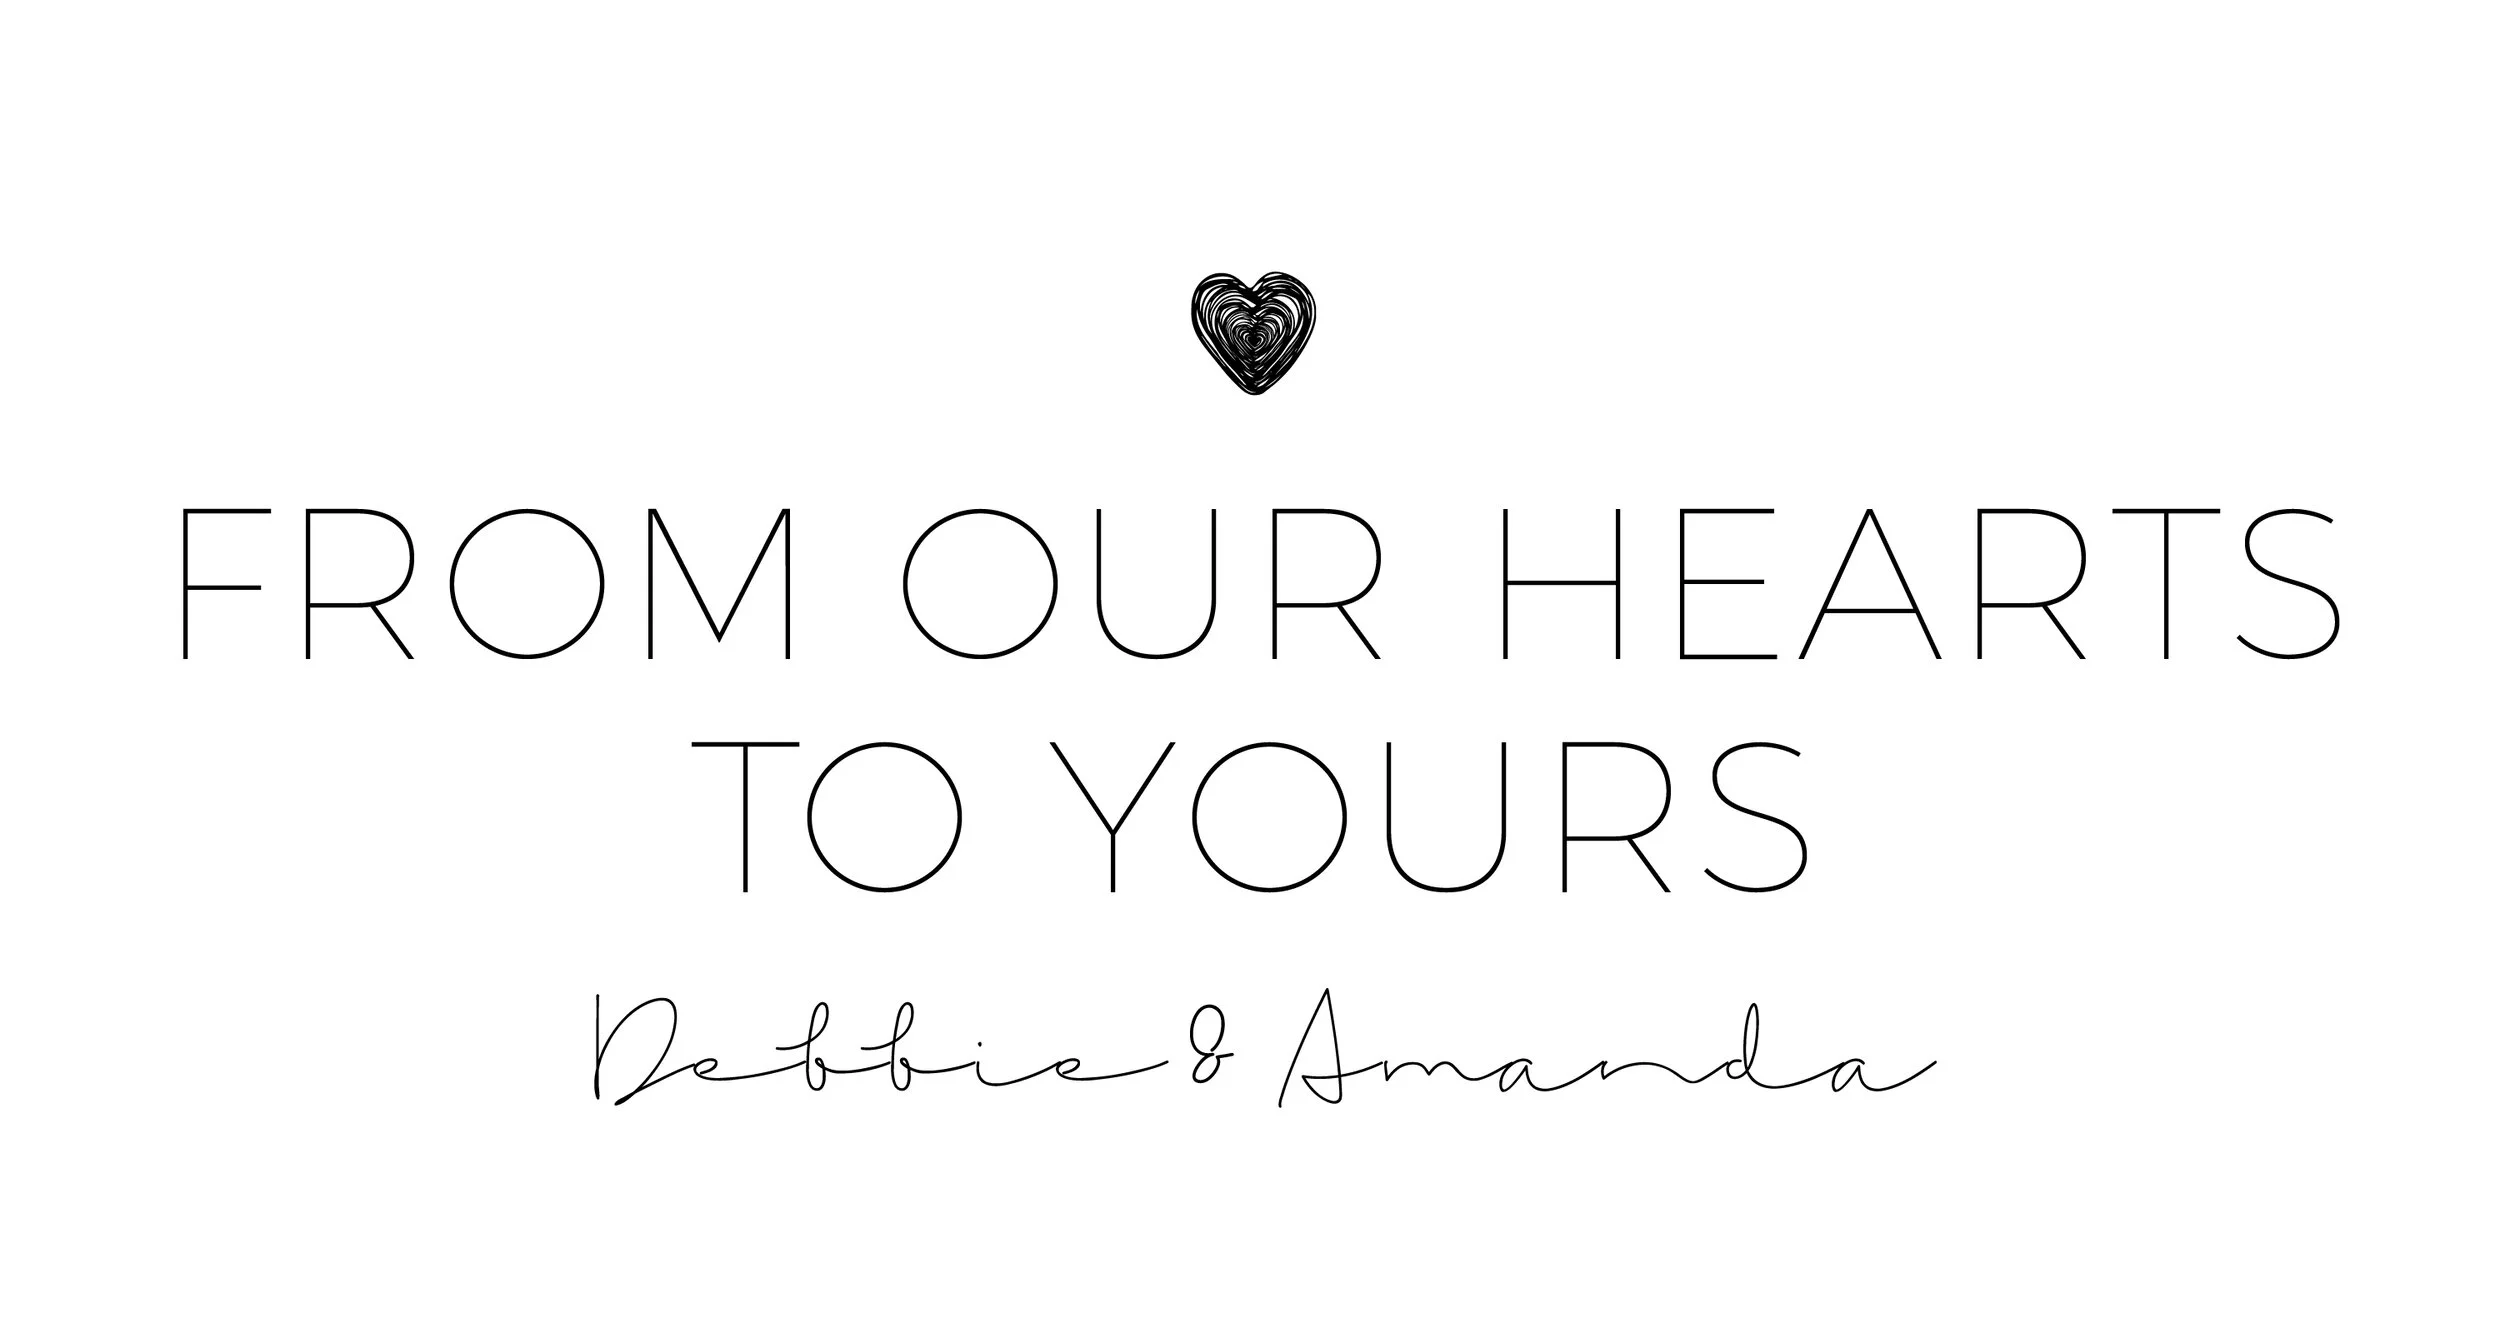 FROM OUR HEARTS
TO YOURS
Debbie & Amanda